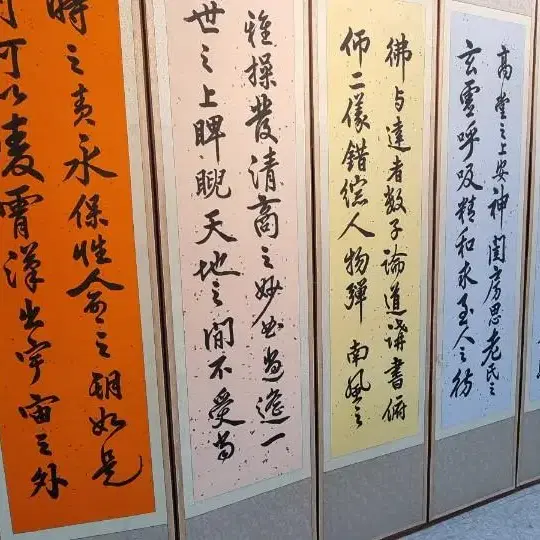 高堂之上安神閨房思老氏之
玄虛呼吸精和求至人之彷
彿与達者数子論道講書俯
仰二儀錯綜人物彈南風之
雅操發清商之妙曲逍遙一
世之上睥睨天地之間不受當
時之責永保性命之期如是
可以凌霄漢出宇宙之外